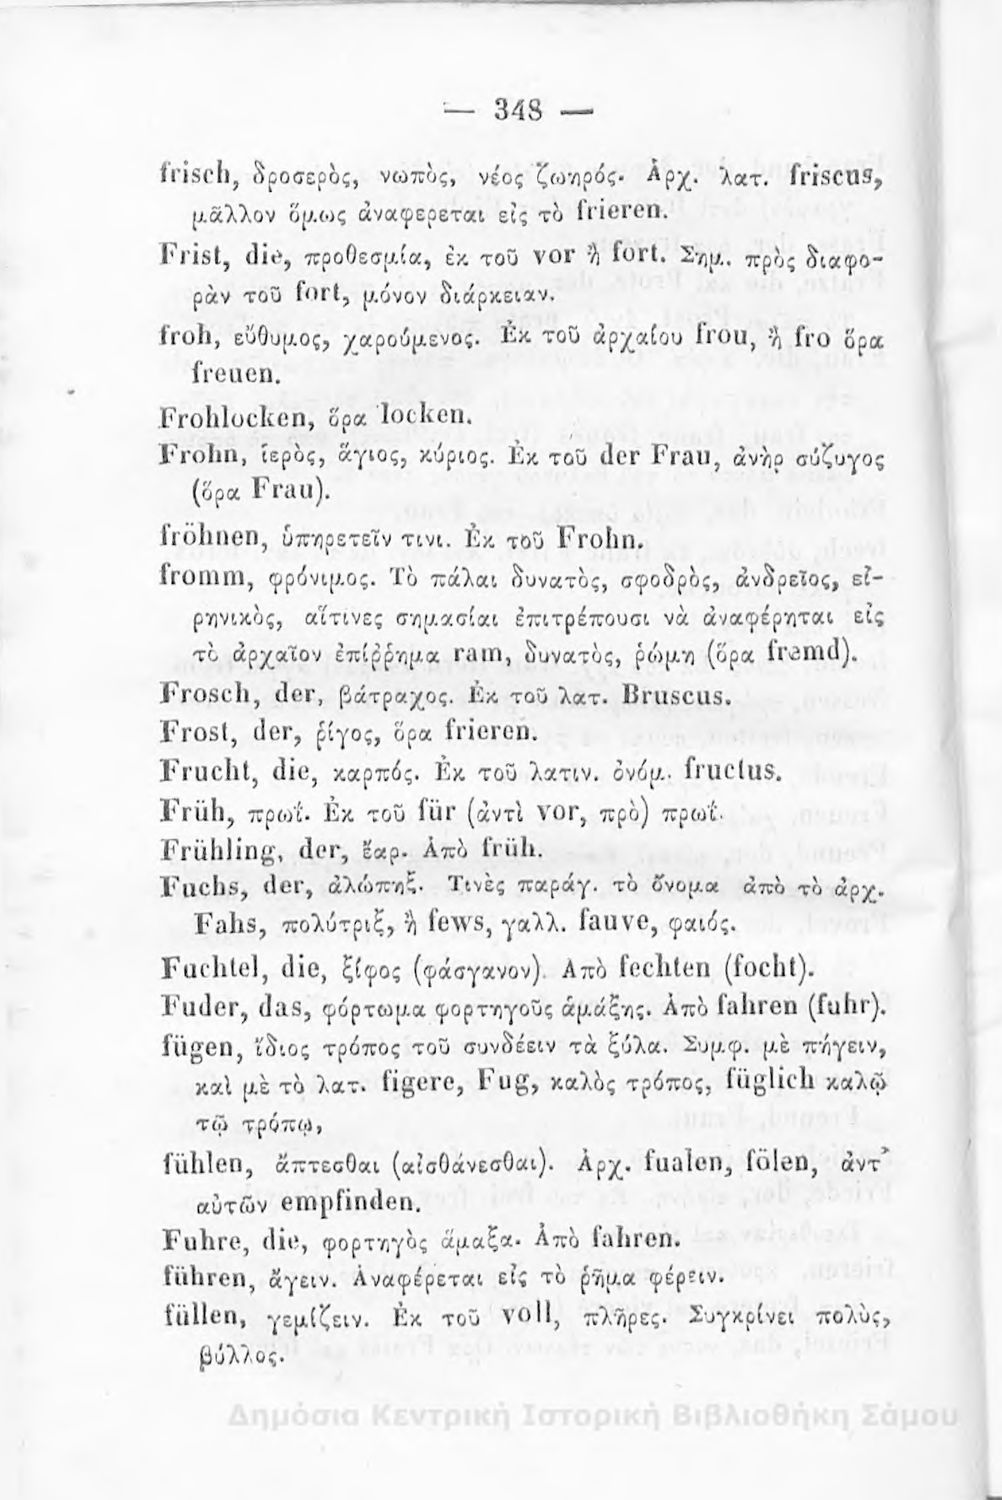 — 348 —
frisch, δροσερὸς, νωπὸς, νέος ζωηρός· Ἀρχ. λατ. friscus,
μᾶλλον ὅμως ἀναφερεται εἰς τὸ frieren.
Frist, die, προθεσμία, ἐκ τοῦ vor ἢ fort. Σημ. πρὸς διαφο-
ρὰν τοῦ fort, μόνον διάρκειαν.
froh, εὔθυμος, χαρούμενος. Ἐκ τοῦ ἀρχαίου frou, ἢ fro ὅρα
freuen.
Frohlocken, ὅρα locken.
Frohn, ἱερὸς, ἅγιος, κύριος. Ἐκ τοῦ der Frau, ἀνὴρ σύζυγος
(ὅρα Frau).
fröhnen, ὑπηρετεῖν τινι. Ἐκ τοῦ Frohn.
fromm, φρόνιμος. Τὸ πάλαι δυνατὸς, σφοδρὸς, ἀνδρεῖος, εἰ-
ρηνικὸς, αἵτινες σημασίαι ἐπιτρέπουσι νὰ ἀναφέρηται εἰς
τὸ ἀρχαῖον ἐπίῤῥημα ram, δυνατὸς, ῥώμη (ὅρα fremd).
Frosch, der, βάτραχος. Ἐκ τοῦ λατ. Bruscus.
Frost, der, ῥίγος, ὅρα frieren.
Frucht, die, καρπός. Ἐκ τοῦ λατιν. ὀνόμ. fructus.
Früh, πρωΐ. Ἐκ τοῦ für (ἀντὶ vor, πρὸ) πρωΐ.
Frühling, der, ἔαρ. Ἀπὸ früh.
Fuchs, der, ἀλώπηξ. Τινὲς παράγ. τὸ ὄνομα ἀπὸ τὸ ἀρχ.
Fahs, πολύτριξ, ἢ fews, γαλλ. fauve, φαιός.
Fuchtel, die, ξίφος (φάσγανον). Ἀπὸ fechten (focht).
Fuder, das, φόρτωμα φορτηγοῦς ἁμάξης. Ἀπὸ fahren (fuhr).
fügen, ἴδιος τρόπος τοῦ συνδέειν τὰ ξύλα. Συμφ. μὲ πήγειν,
καὶ μὲ τὸ λατ. figere, Fug, καλὸς τρόπος, füglich καλῷ
τῷ τρόπῳ,
fühlen, ἅπτεσθαι (αἰσθάνεσθαι). Ἀρχ. fualen, fölen, ἀντ'
αὐτῶν empfinden.
Fuhre, die, φορτηγὸς ἅμαξα. Ἀπὸ fahren.
führen, ἄγειν. Ἀναφέρεται εἰς τὸ ῥῆμα φέρειν.
füllen, γεμίζειν. Ἐκ τοῦ voll, πλῆρες. Συγκρίνει πολὺς,
βύλλος.
Δημόσια Κεντρική Ιστορική Βιβλιοθήκη Σάμου